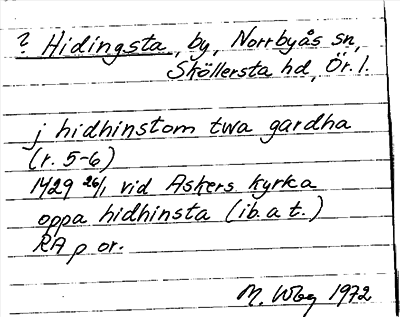 ? Hidingsta, by, Norrbyås sn,
Sköllersta hd, Ör. l.
j hidhinstom twa gardha
(r. 5-6)
1429 26/1 vid Askers kyrka
oppa hidhinsta (ib. a t.)
RA p or.
M. Wbg 1972